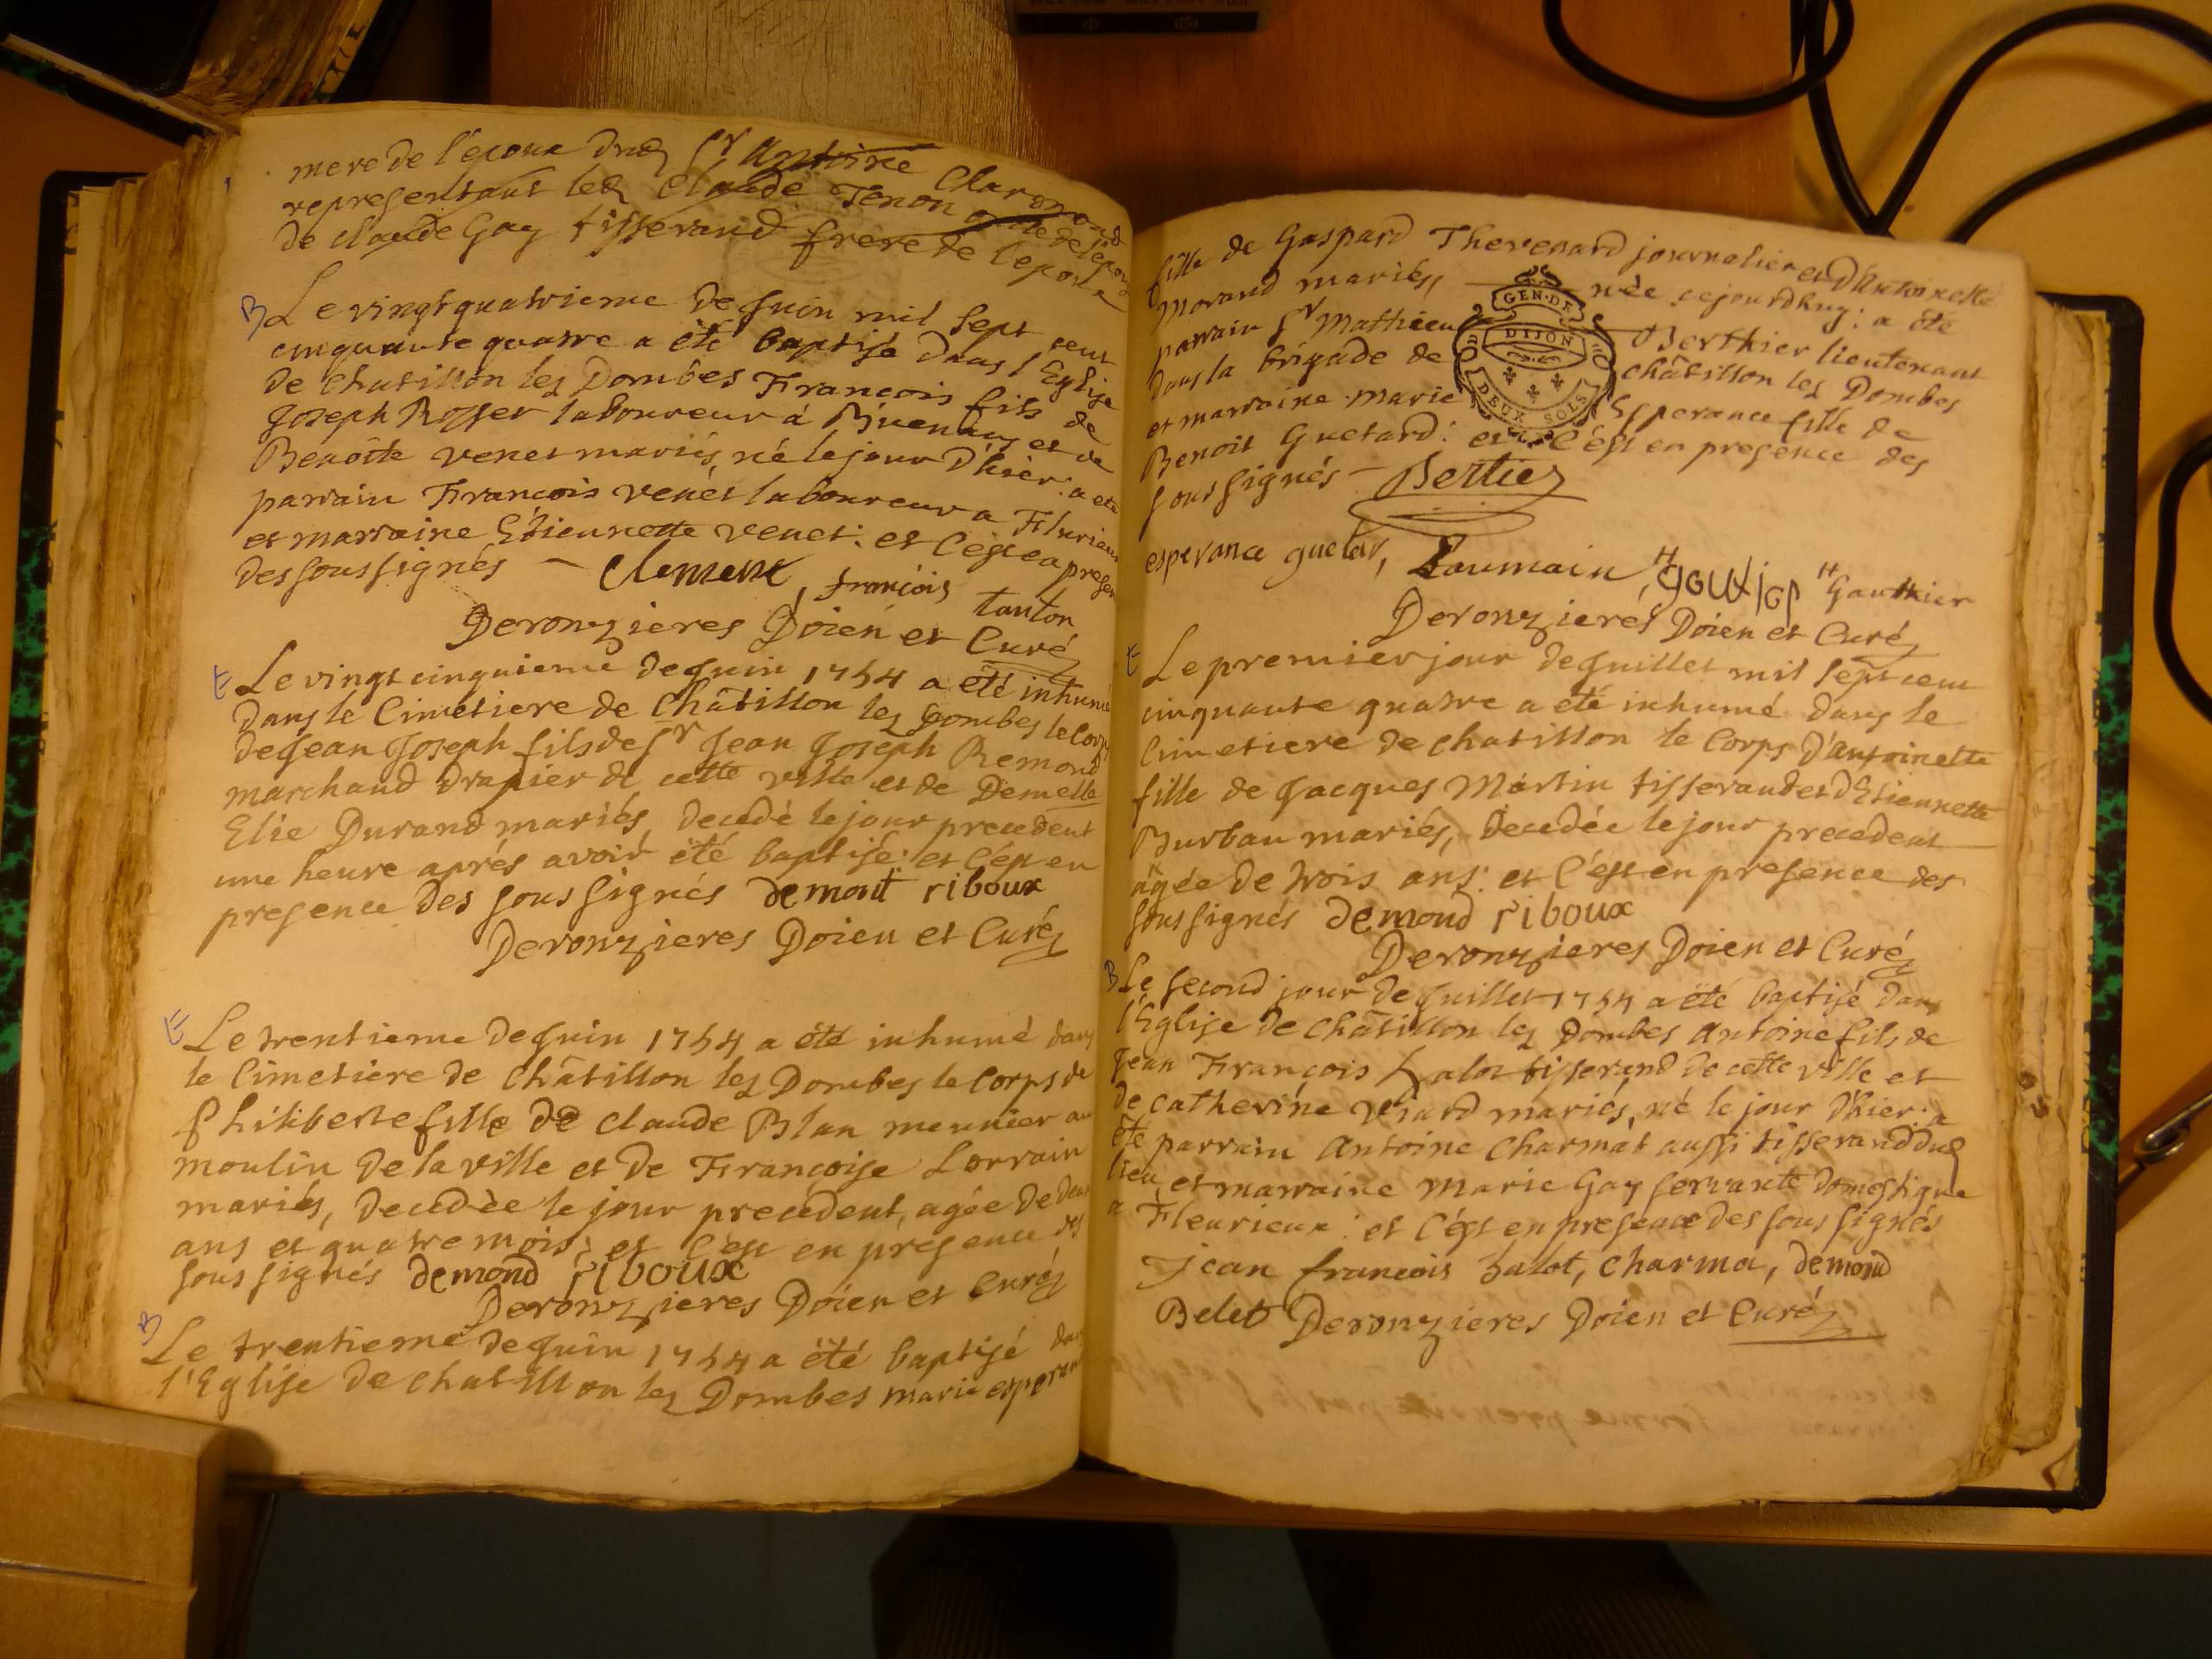 mere de l'epoux dud Sr Antoine Claromond
representant led Claude Tenon oncle de l'epoux
de claude Gay tisserand frere de l'epoux
B Le vingt quatrieme de Juin mil sept cent
cinquante quatre a été baptisé dans l'Eglise
de Chatillon les Dombes François fils de
Joseph Rosset laboureur à Buenans et de
Benoite venet mariés, né le jour d'hier: a été
parrain François venet laboureur a Flurieux
et marraine Etiennette venet: et c'est en presen
des soussignés — Clement, françois tanton
Deronzieres Doien et Curé
E Le vingt cinquieme de Juin 1754 a été inhumé
dans le Cimetiere de Châtillon les Dombes le Corps
de Jean Joseph fils de Sr Jean Joseph Remond
marchand drapier de cette ville et de Demelle
Elie Durand mariés, decedé le jour precedent
une heure aprés avoir été baptisé: et c'est en
presence des soussignés demont riboux
Deronzieres Doien et Curé
E Le trentieme de Juin 1754 a été inhumé dans
le Cimetiere de Châtillon les Dombes le Corps de
Philiberte fille de Claude Blan meunier au
moulin de la ville et de Françoise Lorrain
mariés, decedèe le jour precedent, agée de deux
ans et quatre mois: et c'est en presence des
soussignés demond riboux
Deronzieres Doien et Curé
B Le trentieme de Juin 1754 a été baptisé dans
l'Eglise de Chatillon les Dombes marie esperance
fille de Gaspard Thevenard journalier et d'Antoinette
Morand mariés, — née cejourdhuy: a été
parrain Sr Mathieu Berthier lieutenant
dans la brigade de châtillon les Dombes
et marraine marie Esperance fille de
Benoit Guetard: et c'est en presence des
soussignés — Bertier
GEN·DE
DIJON
DEUX SOLS
esperance guetar, Laumain, H gautier H Gauthier
Deronzieres Doien et Curé
E Le premier jour de Juillet mil sept cent
cinquante quatre a été inhumé dans le
Cimetiere de chatillon le Corps d'antoinette
fille de Jacques Martin tisserand et d'Etiennette
Burbau mariés, decedée le jour precedent
agée de trois ans: et c'est en presence des
soussignés demond riboux
Deronzieres Doien et Curé
B Le second jour de Juillet 1754 a été baptisé dans
l'Eglise de châtillon les Dombes Antoine fils de
Jean François halot tisserand de cette ville et
de catherine viard mariés, né le jour d'hier: a
été parrain Antoine Charmat aussi tisserand dud
lieu et marraine marie Gay servante domestique
a Fleurieux: et c'est en presence des soussignés
jean francois halot, charma, demond
Belet Deronzieres Doien et Curé